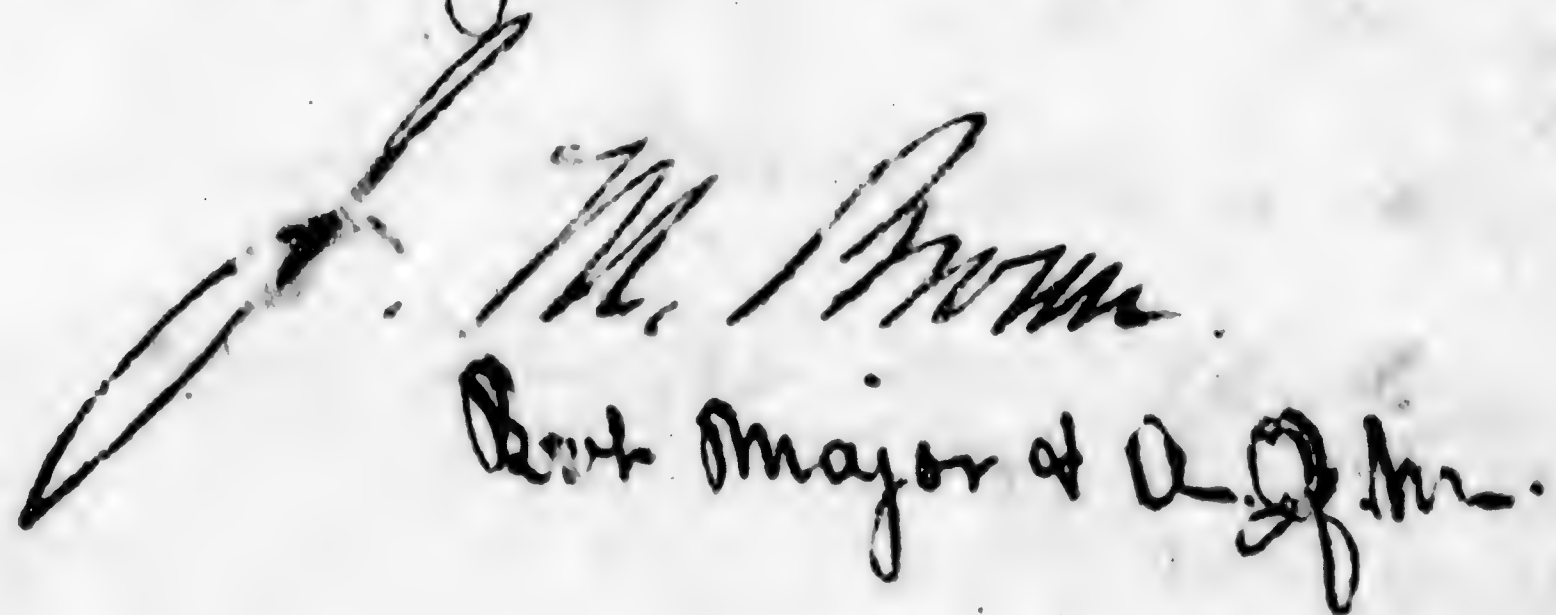 J. M. Brown.
Bvt Major & A.Q.M.